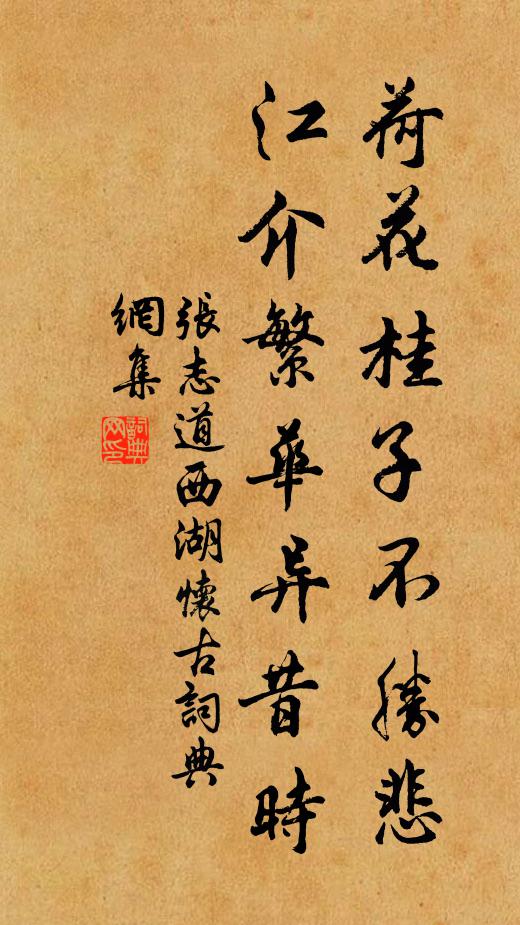 荷花桂子不勝悲
江介繁華异昔時
張志道西湖懷古詞典
網集
詞典
网印